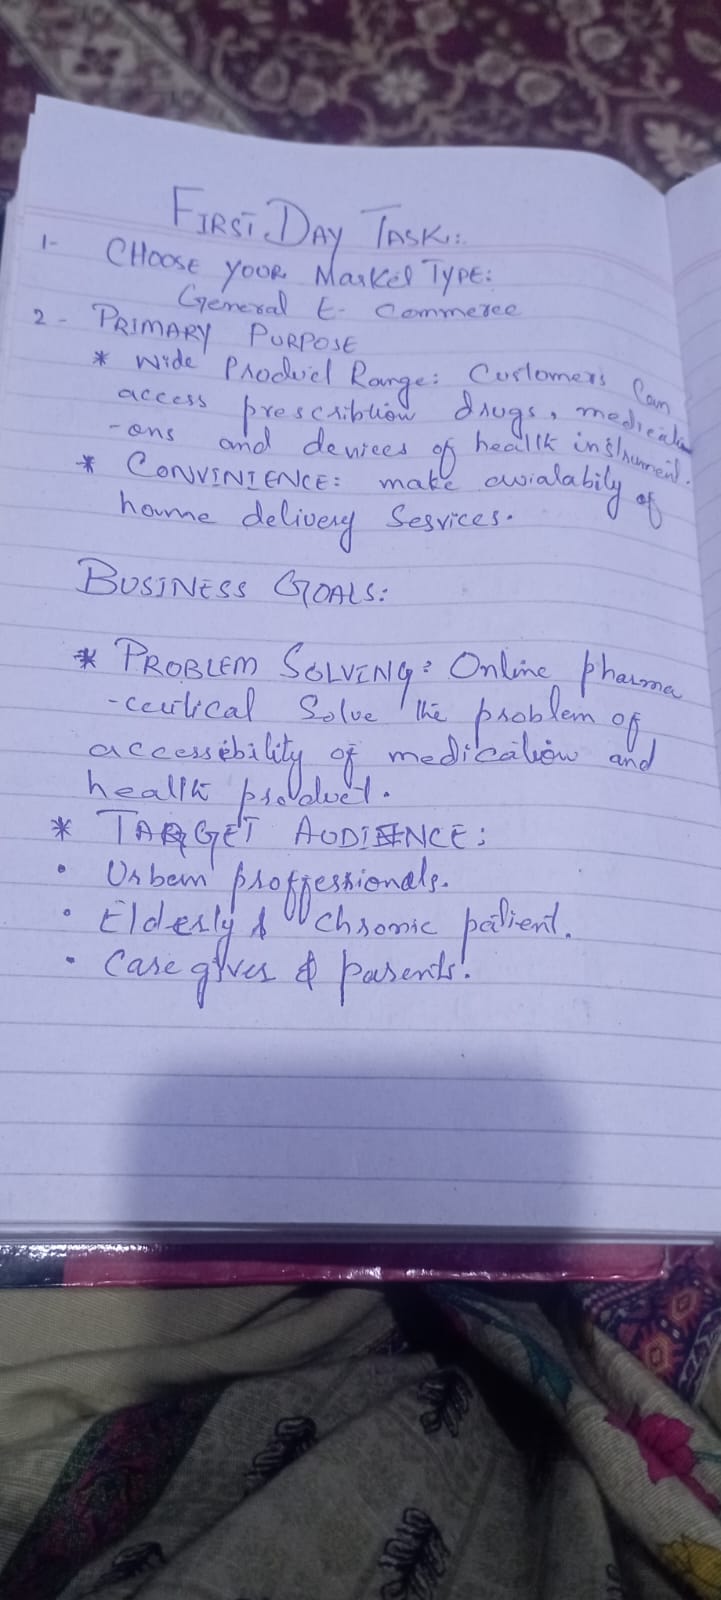 FIRST DAY TASK:
1- CHOOSE YOUR Market TYPE:
General E- Commerce
2- PRIMARY PURPOSE
* Wide Product Range: Customers Can
access prescribtion drugs, medicati
-ons and devices of health instrument.
* CONVINIENCE: make avialabily of
home delivery Services.
BUSINESS GOALS:
* PROBLEM SOLVING: Online pharma
-ceutical Solve the problem of
accessibility of medication and
health product.
* TARGET AUDIENCE:
• Urben proffessionals.
• Elderly & Chronic patient.
• Care gives & parents.